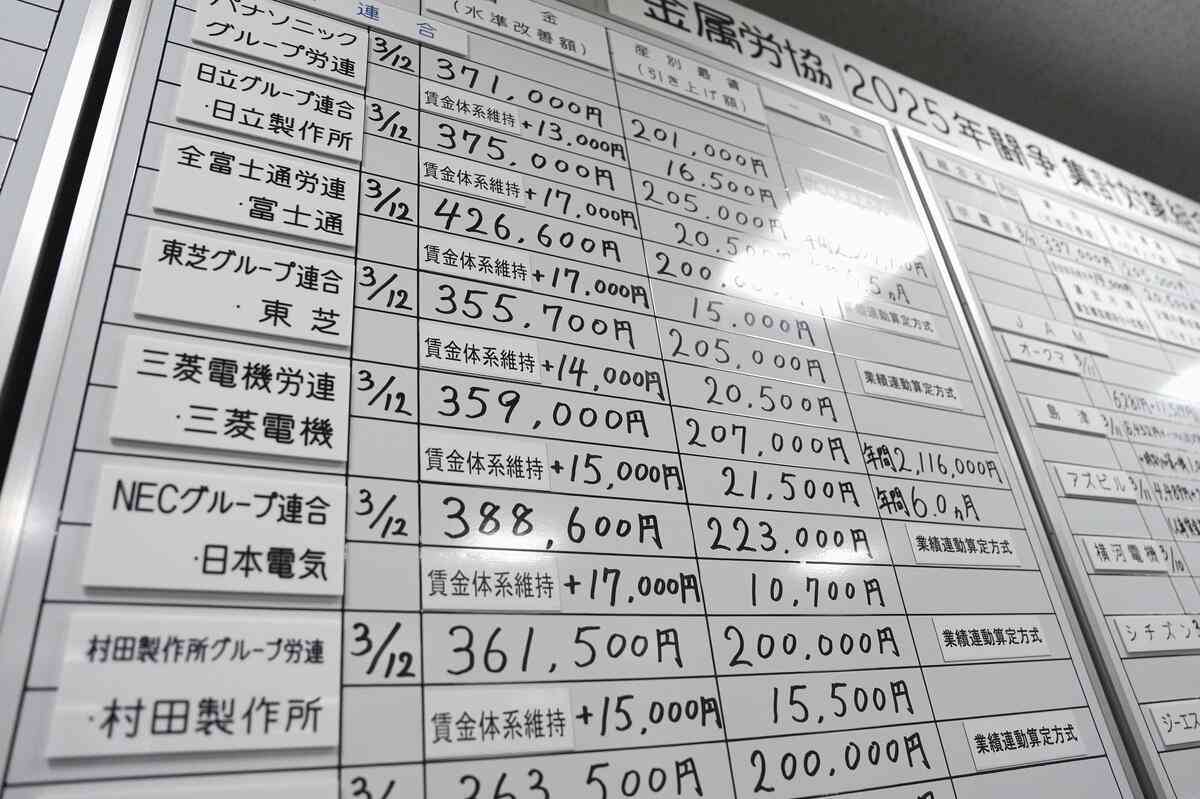 金属労協 2025年闘争 集計対象組
連合
金
(水準改善額)
産別最賃
(引き上げ額)
一時金
パナソニック
グループ労連
3/12
371,000円
201,000円
賃金体系維持 +13,000円
16,500円
日立グループ連合
・日立製作所
3/12
375,000円
205,000円
賃金体系維持 +17,000円
20,500
ヵ月
全富士通労連
・富士通
3/12
426,600円
賃金体系維持 +17,000円
15,000円
業績連動算定方式
東芝グループ連合
・東芝
3/12
355,700円
205,000円
業績連動算定方式
賃金体系維持 +14,000円
20,500円
三菱電機労連
・三菱電機
3/12
359,000円
207,000円
年間2,116,000円
賃金体系維持 +15,000円
21,500円
年間6.0ヵ月
NECグループ連合
・日本電気
3/12
388,600円
223,000円
業績連動算定方式
賃金体系維持 +17,000円
10,700円
村田製作所グループ労連
・村田製作所
3/12
361,500円
200,000円
業績連動算定方式
賃金体系維持 +15,000円
15,500円
363,500円
200,000円
業績連動算定方式
337,000円
JAM
オークマ 3/11
島津 3/11
アズビル 3/11
横河電機 3/10
シチズン
ジーエス